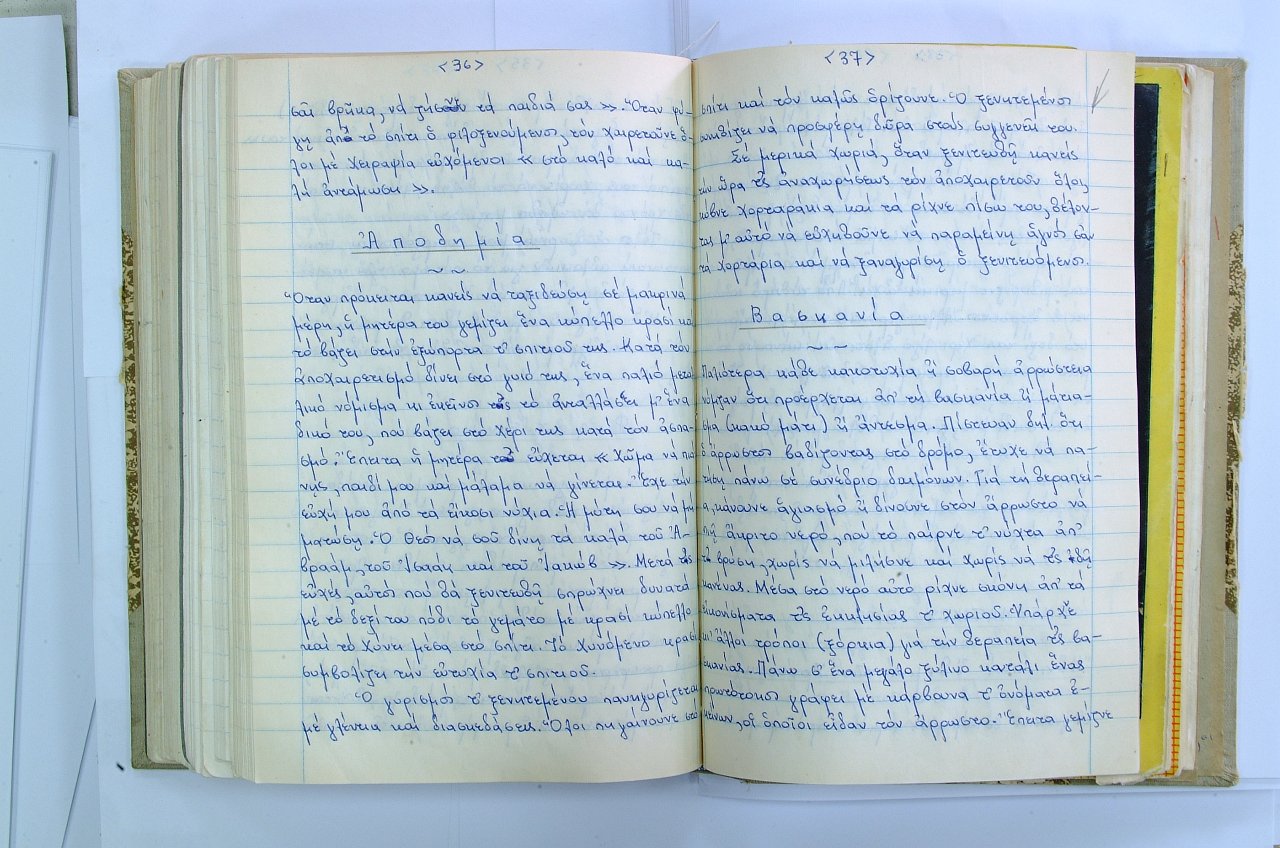 <36>
σᾶι βρῆκα, νά ζήσουν τά παιδιά σας ». Ὅταν φύ-
γῃ ἀπό τό σπίτι ὁ φιλοξενούμενος, τόν χαιρετοῦνε ὅ-
λοι μέ χειραψία εὐχόμενοι « στό καλό καί κα-
λή ἀντάμωση ».
Ἀποδημία
~ ~
Ὅταν πρόκειται κανείς νά ταξιδεύσῃ σέ μακρινά
μέρη, ἡ μητέρα του γεμίζει ἕνα κύπελλο κρασί κα
τό βάζει στήν ἐξώπορτα τ' σπιτιοῦ της. Κατά τόν
ἀποχαιρετισμό δίνει στό γυιό της, ἕνα παλιό μεταλ
λικό νόμισμα κι ἐκεῖνος τῆς τό ἀνταλλάσσει μ' ἕνα
δικό του, πού βάζει στό χέρι της κατά τόν ἀσπα-
σμό. Ἔπειτα ἡ μητέρα τοῦ εὔχεται « Χῶμα νά πιά
νῃς, παιδί μου καί μάλαμα νά γίνεται. Ἔχε τήν
εὐχή μου ἀπό τά εἴκοσι νύχια. Ἡ μύτη σου νά μή
ματώσῃ. Ὁ Θεός νά σοῦ δίνῃ τά καλά τοῦ Ἀ-
βραάμ, τοῦ Ἰσαάκ καί τοῦ Ἰακώβ ». Μετά τίς
εὐχές, αὐτός πού θά ξενιτευθῆ σπρώχνει δυνατά
μέ τό δεξί του πόδι τό γεμάτο μέ κρασί κύπελλο
καί τό χύνει μέσα στό σπίτι. Τό χυνόμενο κρασί
συμβολίζει τήν εὐτυχία τ' σπιτιοῦ.
Ὁ γυρισμός τ' ξενιτεμένου πανηγυρίζεται
μέ γλέντια καί διασκεδάσεις. Ὅλοι πηγαίνουνε στό
<37>
σπίτι καί τόν καλῶς ὁρίζουνε. Ὁ ξενιτεμένος
συνηθίζει νά προσφέρῃ δῶρα στούς συγγενεῖς του.
Σέ μερικά χωριά, ὅταν ξενιτευθῆ κανείς
τήν ὥρα τῆς ἀναχωρήσεως τόν ἀποχαιρετοῦν ὅλοι,
κόβνε χορταράκια καί τά ρίχνε πίσω του, θέλον-
τας μ' αὐτό νά εὐχηθοῦνε νά παραμείνῃ ἁγνός σάν
τά χορτάρια καί νά ξαναγυρίσῃ ὁ ξενιτευόμενος.
Βασκανία
~ ~
Παλιότερα κάθε κακοτυχία ἤ σοβαρή ἀρρώστεια
νόμιζαν ὅτι προέρχεται ἀπ' τή βασκανία ἤ μάτια-
σμα (κακό μάτι) ἤ ἄντεσμα. Πίστευαν δηλ. ὅτι
ὁ ἄρρωστος βαδίζοντας στό δρόμο, ἔτυχε νά πα-
τήσῃ πάνω σέ συνέδριο δαιμόνων. Γιά τή θεραπεί-
α, κάνουνε ἁγιασμό ἤ δίνουνε στόν ἄρρωστο νά
πιῆ ἄκριτο νερό, πού τό παίρνε τ' νύχτα ἀπ'
τή βρύση, χωρίς νά μιλήσνε καί χωρίς νά τς ἰδῆ
κανένας. Μέσα στό νερό αὐτό ρίχνε σκόνη ἀπ' τά
εἰκονίσματα τῆς ἐκκλησίας τ' χωριοῦ. Ὑπάρχνε
κι' ἄλλοι τρόποι (ξόρκια) γιά τήν θεραπεία τῆς βα-
σκανίας. Πάνω σ' ἕνα μεγάλο ξύλινο κουτάλι ἕνας
πρωτότοκος γράφει μέ κάρβουνα τ' ὀνόματα ἐ-
κείνων, οἱ ὁποῖοι εἶδαν τόν ἄρρωστο. Ἔπειτα γεμίζνε